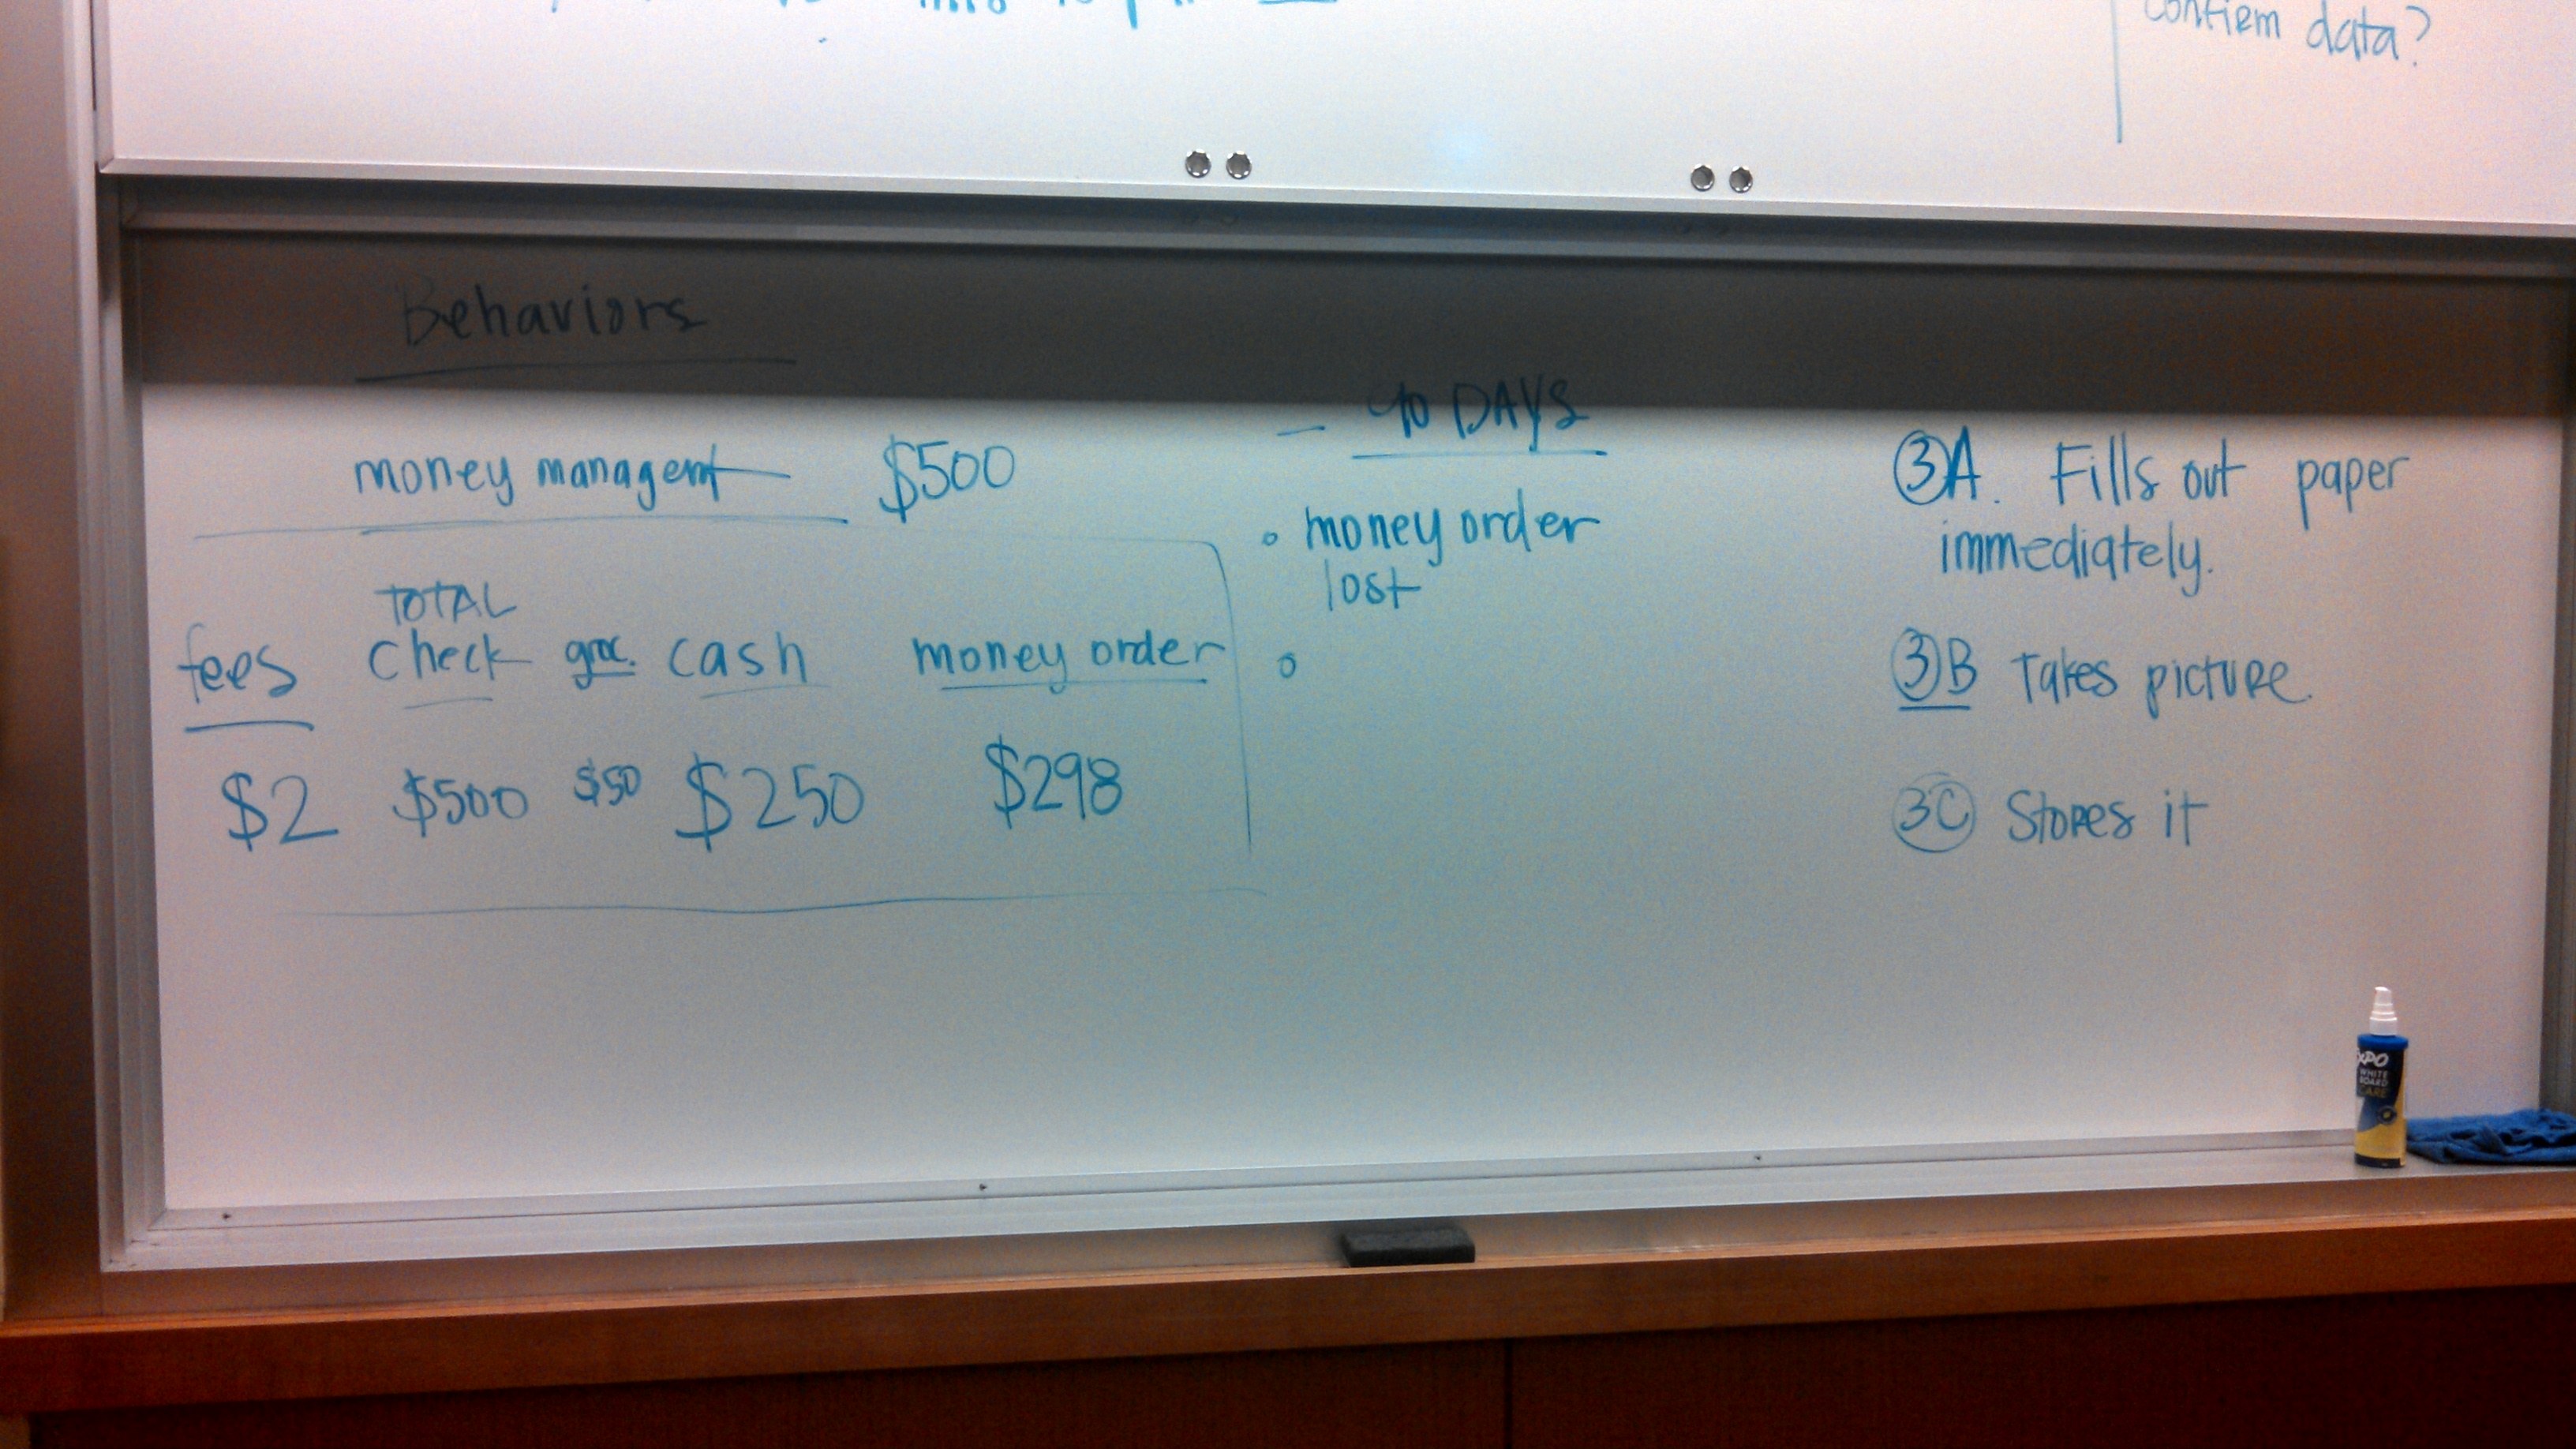 confirm data?
Behaviors
money managent $500
TOTAL
fees check groc. cash money order
$2 $500 $50 $250 $298
- 40 DAYS
money order
lost
3A. Fills out paper
immediately.
3B Takes picture.
3C Stores it
EXPO
WHITE
BOARD
CARE